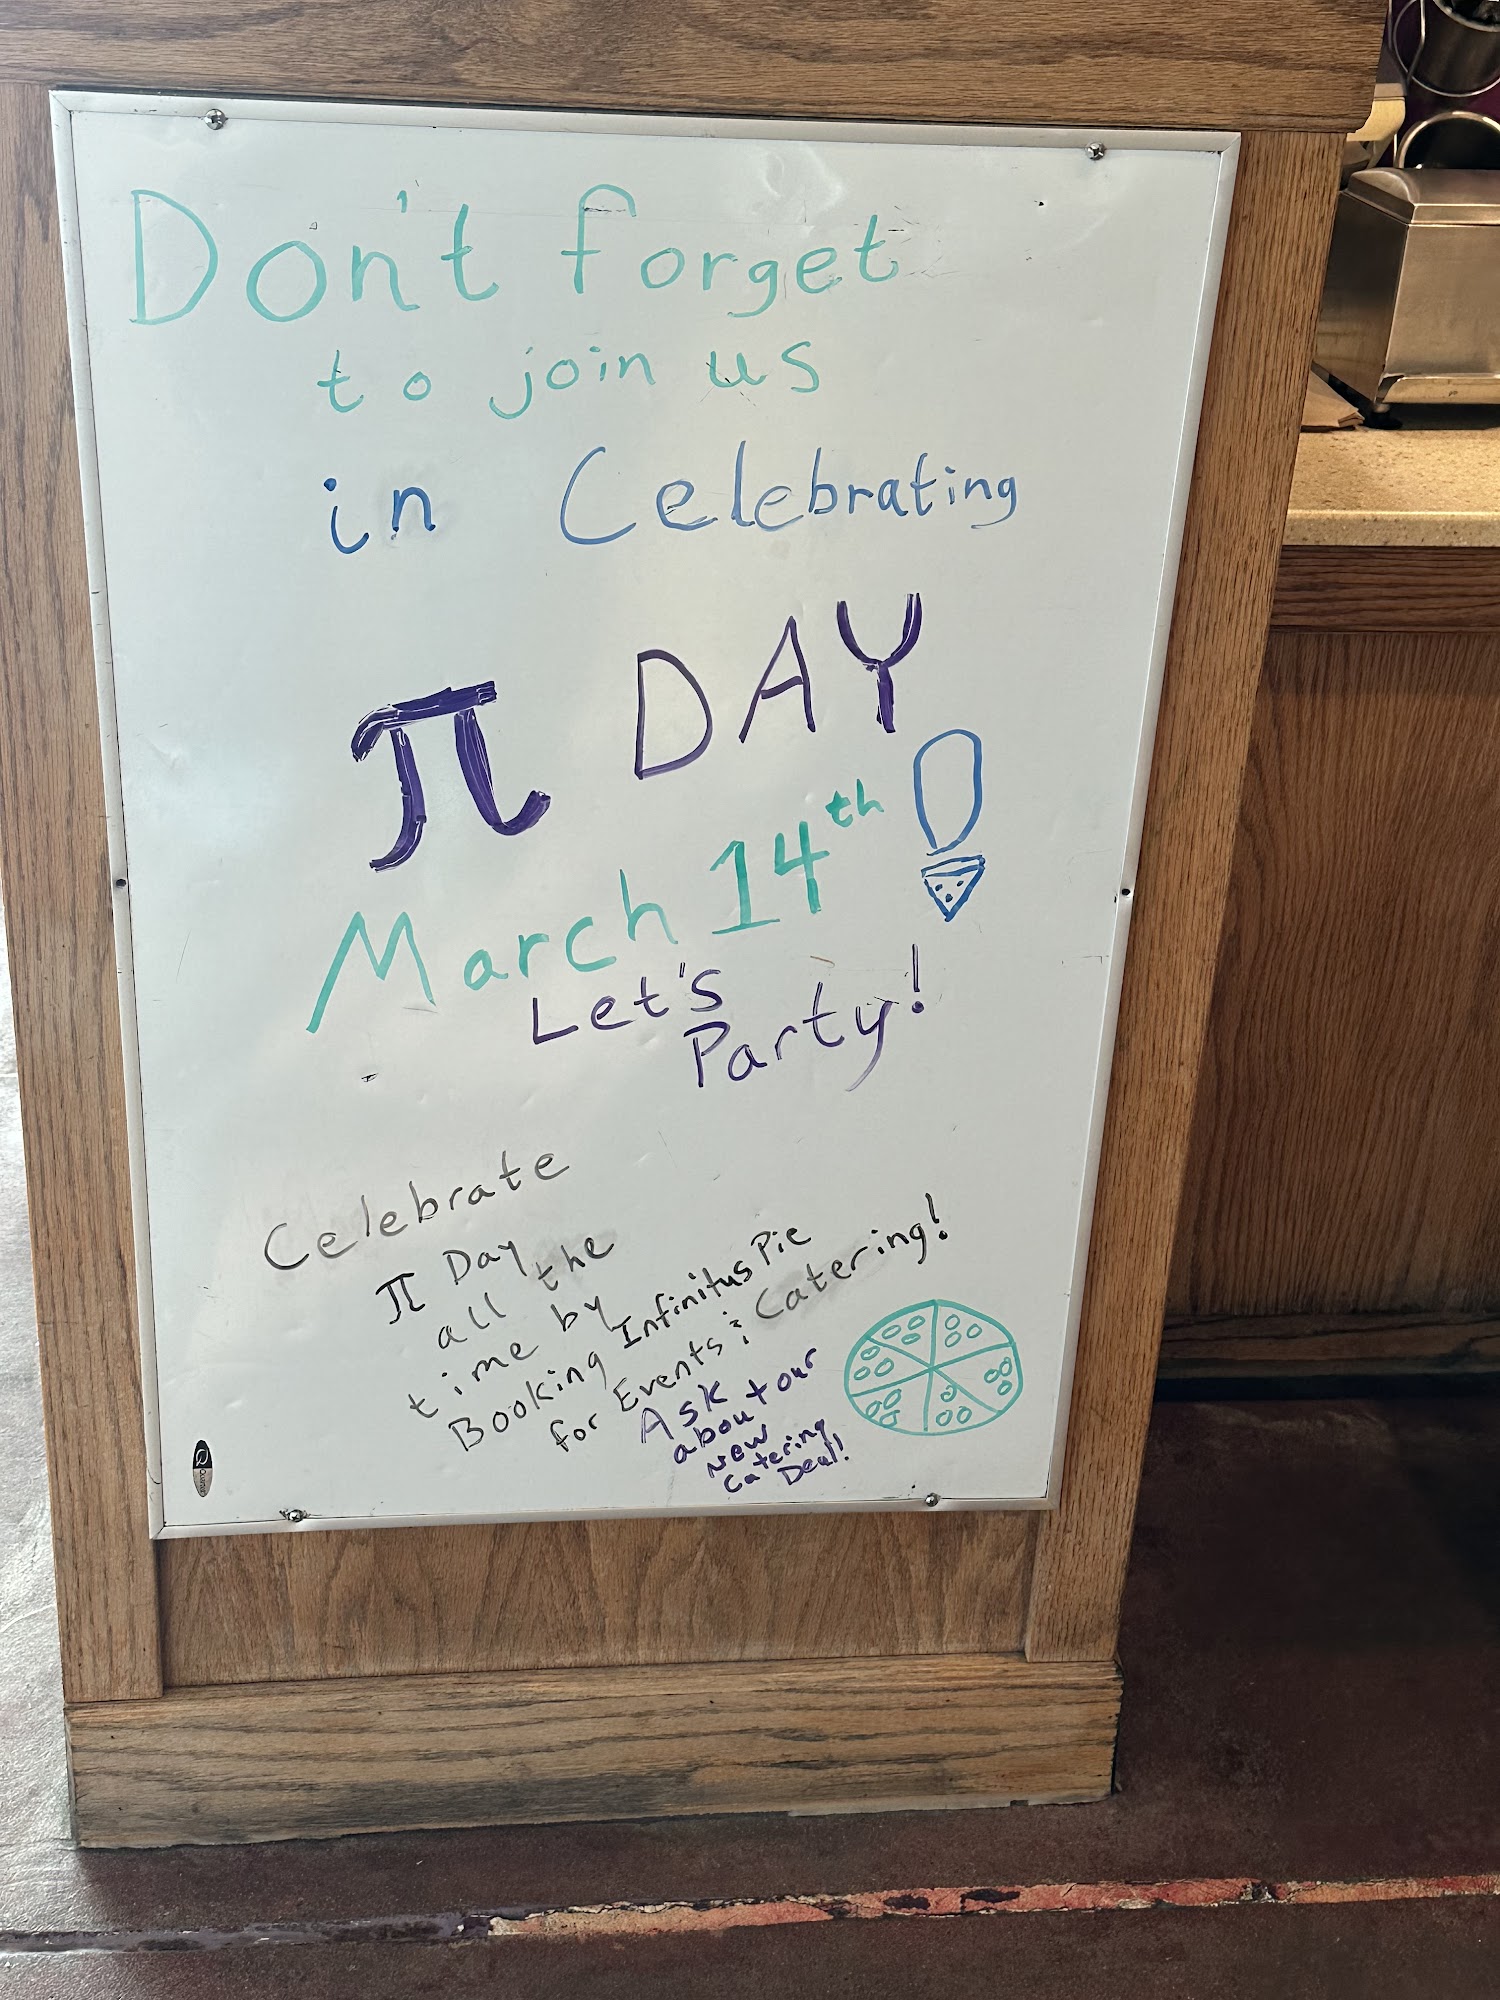 Don't forget
to join us
in Celebrating
π DAY
March 14th!
Let's
Party!
Celebrate
π Day
all the
time by
Booking Infinitus Pie
for Events & Catering!
Ask
about our
New
Catering
Deal!
Quartet